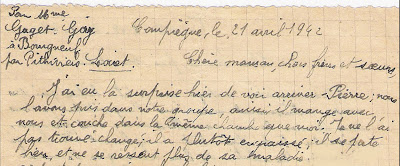 Pour Mme
Gaget-Gay
à Bougneuf
par Pithiviers-Loiret
Compiègne, le 21 avril 1942
Chère maman, chers frères et sœurs,
J'ai eu la surprise hier de voir arriver Pierre; nous
l'avons pris dans notre groupe, aussi il mange avec
nous et couche dans la même chambre que moi. Je ne l'ai
pas trouvé changé; il a plutôt engraissé; il se porte
bien et ne se ressent plus de sa maladie.